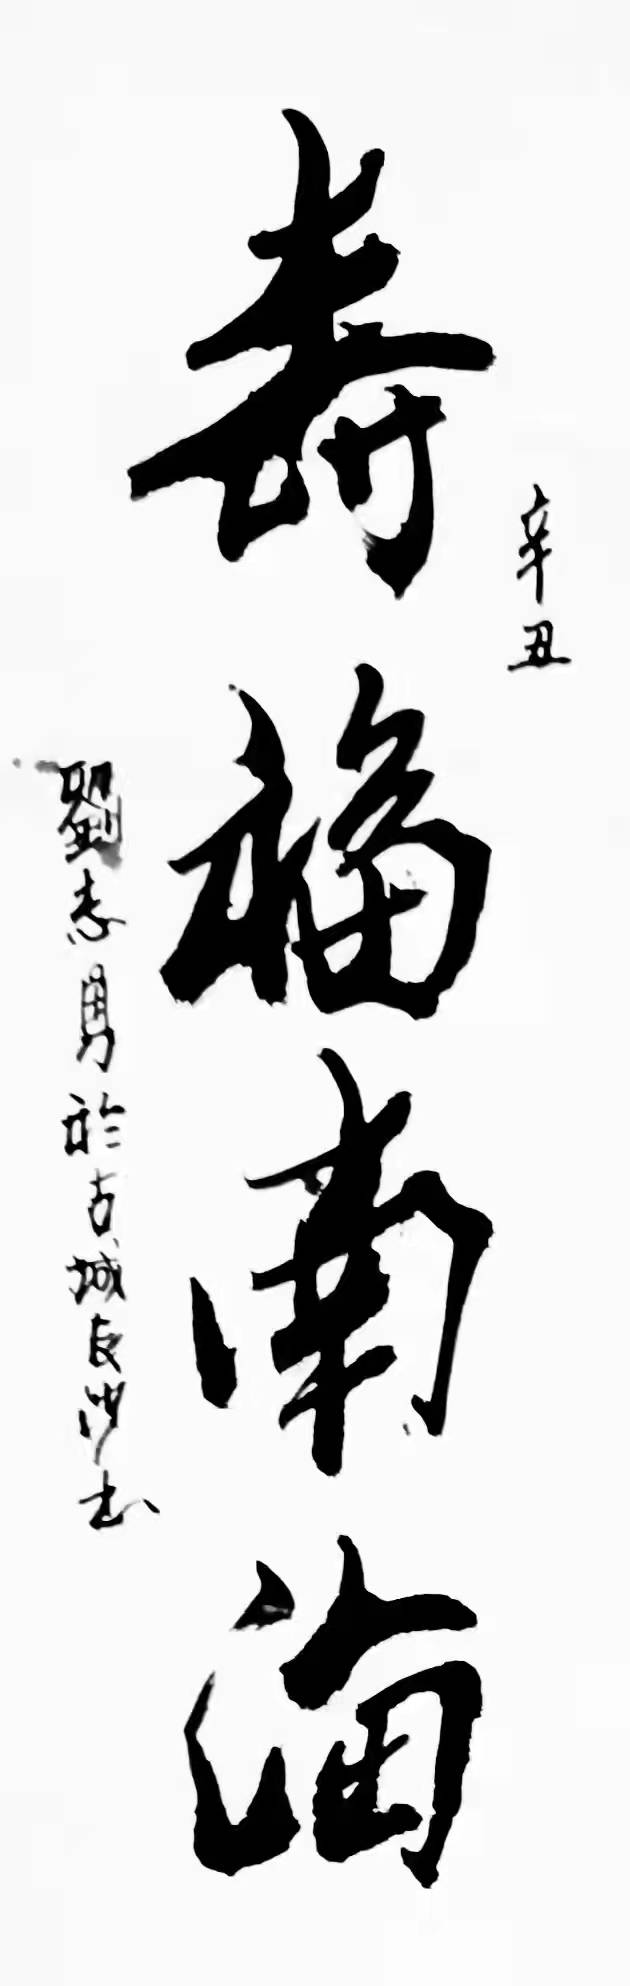 辛丑
寿福南海
劉志勇於古城長沙书